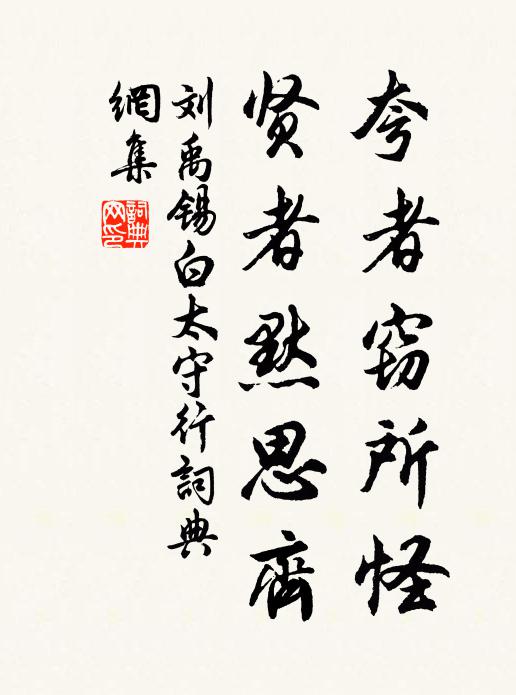 夸者窃所怪
贤者默思齊
刘禹锡白太守行詞典
網集
詞典
网印